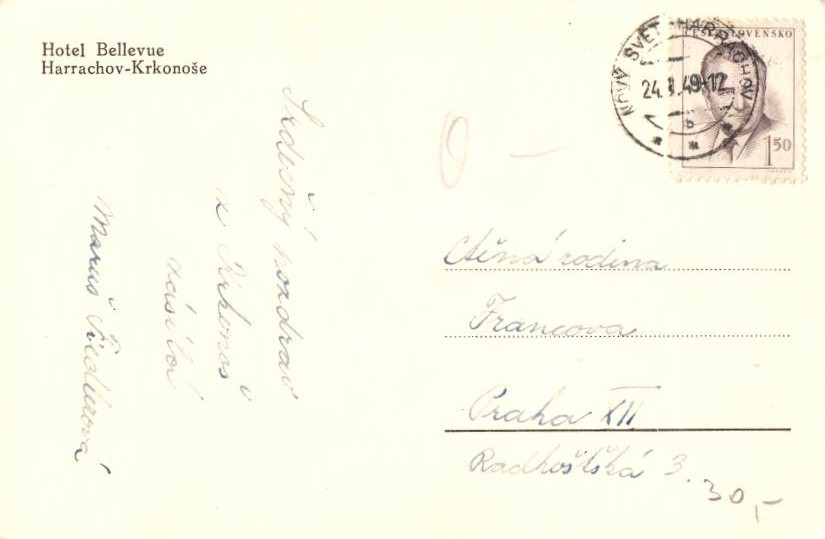 Hotel Bellevue
Harrachov-Krkonoše
Srdečný pozdrav
z Krkonoš
zasílá
NOVÝ SVĚT-HARRACHOV
24. 49-12
b
ČESKOSLOVENSKO
1 50
Ctěná rodina
Francova
Praha XII
Radhošťská 3.
30,-